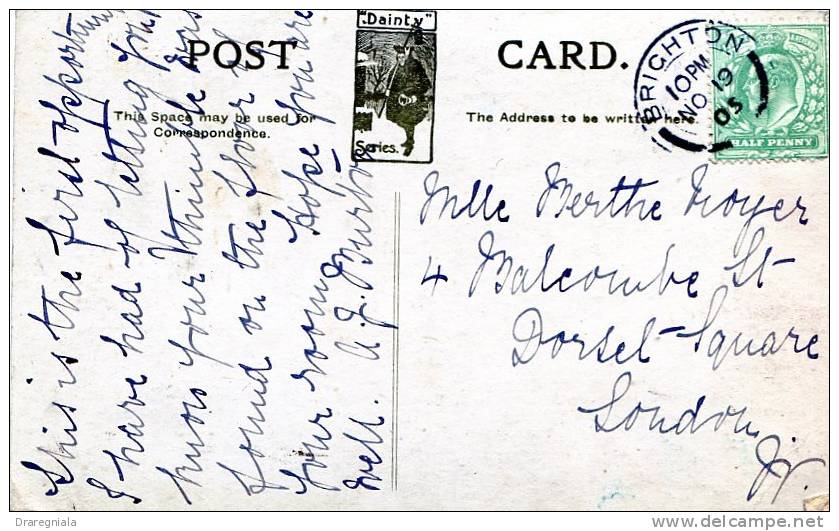 "Dainty"
Series.
POST CARD.
This Space may be used for
Correspondence.
The Address to be written here.
BRIGHTON
10 PM
NO 19
05
HALF PENNY
This is the first opportunity
I have had of letting you
know your thimble was
found on the floor of
your room. Hope you are
well. A. J. Burton
Mlle Berthe Troyer
4 Balcombe St
Dorset Square
London
W.
Draregniala
delcampe.net